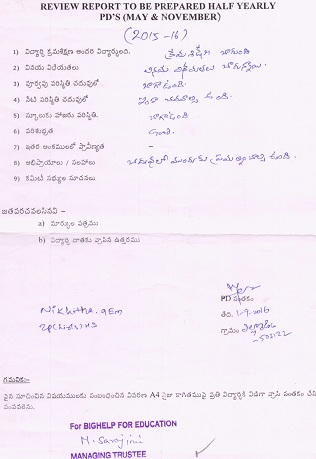 REVIEW REPORT TO BE PREPARED HALF YEARLY
PD'S (MAY & NOVEMBER)
(2015-16)
1) విద్యార్థి క్రమశిక్షణ అందరి విద్యార్థులది. క్రమశిక్షణ బాగుంది
2) వినయ విధేయతలు వినయ విధేయతలు బాగున్నాయి.
3) పూర్వపు పరిస్థితి చదువులో బాగా ఉంది.
4) నేటి పరిస్థితి చదువులో ఇంకా చదవాల్సి ఉంది.
5) స్కూలుకు హాజరు పరిస్థితి. బాగా ఉంది
6) పరిశుభ్రత ఉంది.
7) ఇతర అంశములలో ప్రావీణ్యత –
8) అభిప్రాయాలు / సలహాలు చదువులో ముందుకు ఉండి.
9) కమిటీ సభ్యుల సూచనలు
జతపరచవలసినవి –
a) మార్కుల పత్రము
b) విద్యార్థి దాతకు వ్రాసిన ఉత్తరము
PD సంతకం
Nikhitha. 9EM
తేది. 1-9-2016
గ్రామం
గమనిక:-
పైన సూచించిన విషయములకు సంబంధించిన వివరణ A4 సైజు కాగితముపై ప్రతి విద్యార్థికి విడిగా వ్రాసి సంతకం చేసి
పంపవలెను.
For BIGHELP FOR EDUCATION
M. Sarojini
MANAGING TRUSTEE